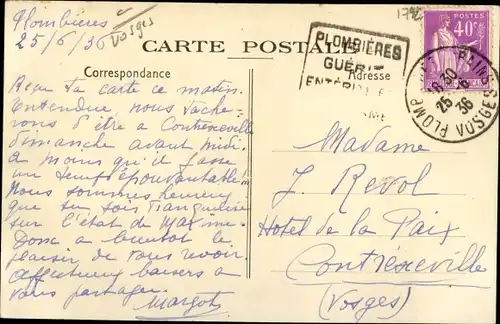 Plombières
25/6/36
Vosges
CARTE POSTALE
Correspondance
Adresse
PLOMBIÈRES
GUÉRIT
POSTES
40c
PLOMB
BAINS
VOSGES
18 30
25 6
36
Reçu ta carte ce matin.
Entendu, nous tâche-
rons d'être à Contrexéville
dimanche avant midi
à moins qu'il fasse
un temps épouvantable!
Nous sommes heureux
que tu sois tranquilisée
sur l'état de Maxime.
Donc à bientôt le
plaisir de vous revoir.
Affectueux baisers à
vous partager.
Margot
Madame
J. Revol
Hôtel de la Paix
Contrexeville
(Vosges)